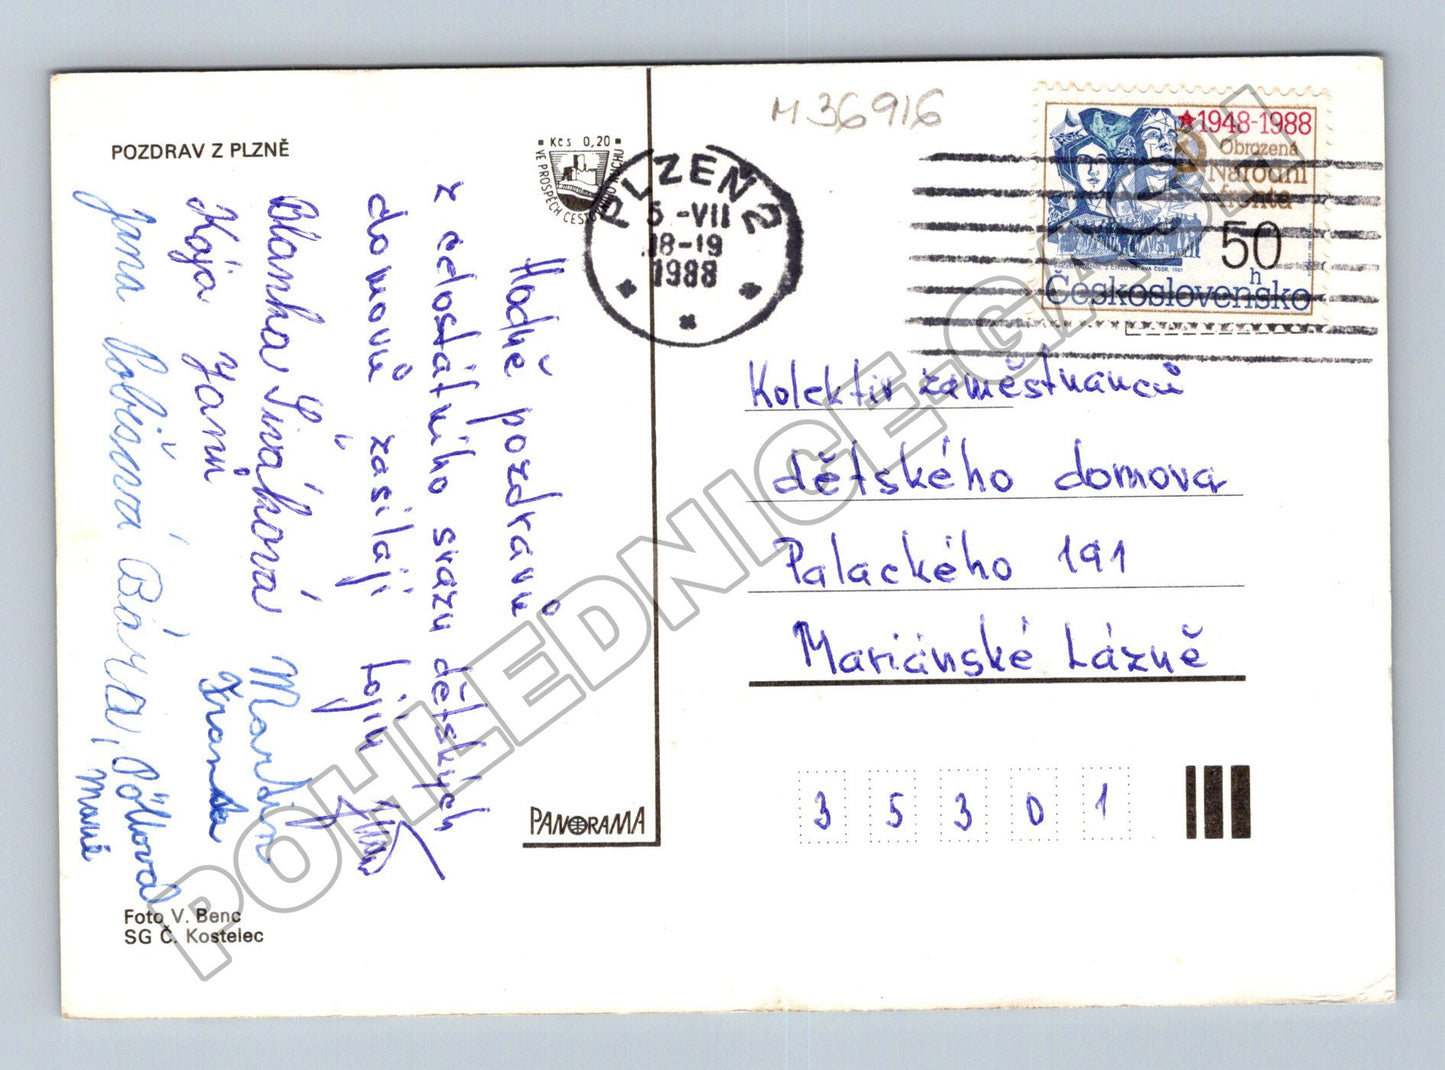 POZDRAV Z PLZNĚ
Kčs 0,20
VE PROSPĚCH CESTOVNÍHO RUCHU
M 36916
PLZEŇ 2
5.-VII
18-19
1988
1948-1988
Obrozená
Národní
fronta
50
h
Československo
Hodně pozdravů
z celostátního svazu dětských
domovů zasílají Lojín
Blanka Siváková Martin
Kája Janů Franta
Jana Bárva, Pöllová
Marie
Kolektiv zaměstnanců
dětského domova
Palackého 191
Mariánské Lázně
35301
PANORAMA
Foto V. Benc
SG Č. Kostelec
POHLEDNICE-GALOU